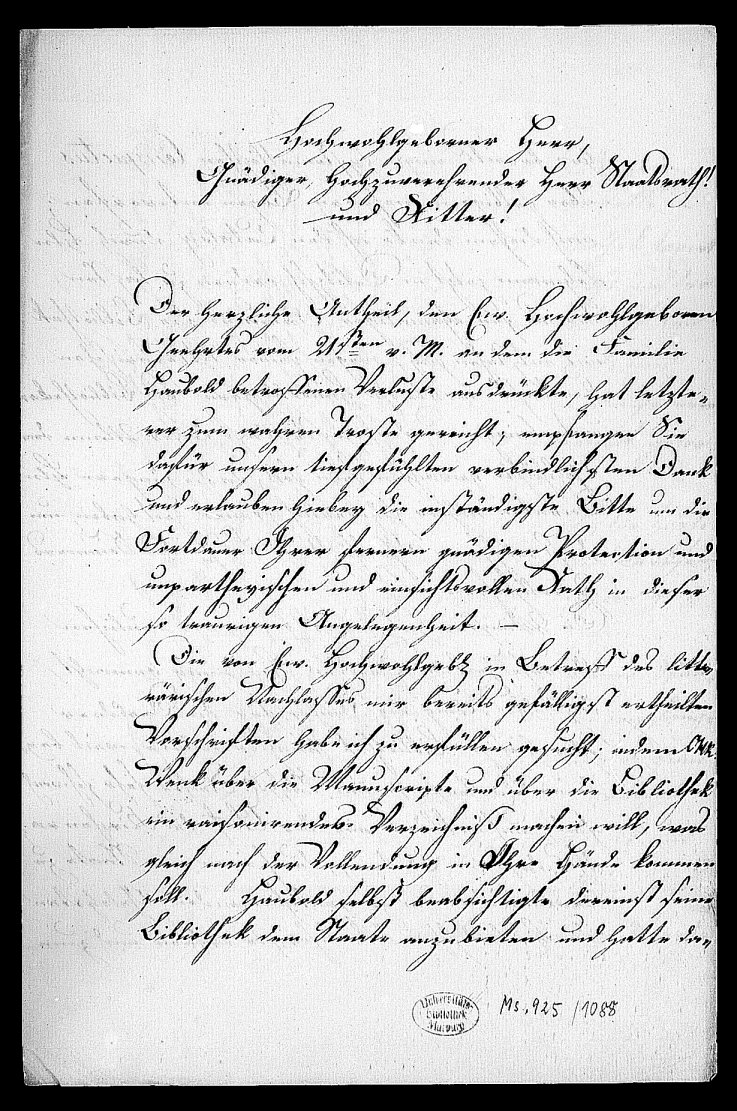 Hochwohlgeborner Herr,
Gnädiger, Hochzuverehrender Herr Staatsrath!
und Ritter!
Der herzliche Antheil, den Ew. Hochwohlgeboren
Geehrtes vom 21sten v. M. an dem die Familie
Haubold betroffenen Verluste ausdrückte, hat letzte-
rer zum wahren Troste gereicht; empfangen Sie
dafür unsern tiefgefühlten verbindlichsten Dank
und erlauben hiebey die inständigste Bitte um die
Fortdauer Ihrer fernern gnädigen Protection und
unpartheyischen und einsichtsvollen Rath in dieser
so traurigen Angelegenheit. —
Die von Ew. Hochwohlgeb. in Betreff des litte-
rärischen Nachlasses mir bereits gefälligst ertheilten
Vorschriften habe ich zu erfüllen gesucht; indem
Wenk über die Manuscripte und über die Bibliothek
ein raisonirendes Verzeichniß machen will, was
gleich nach der Vollendung in Ihre Hände kommen
soll. Haubold selbst beabsichtigte dereinst seine
Bibliothek dem Staate anzubieten und hatte da-
Universitäts-
Bibliothek
Marburg
Ms. 925/1088